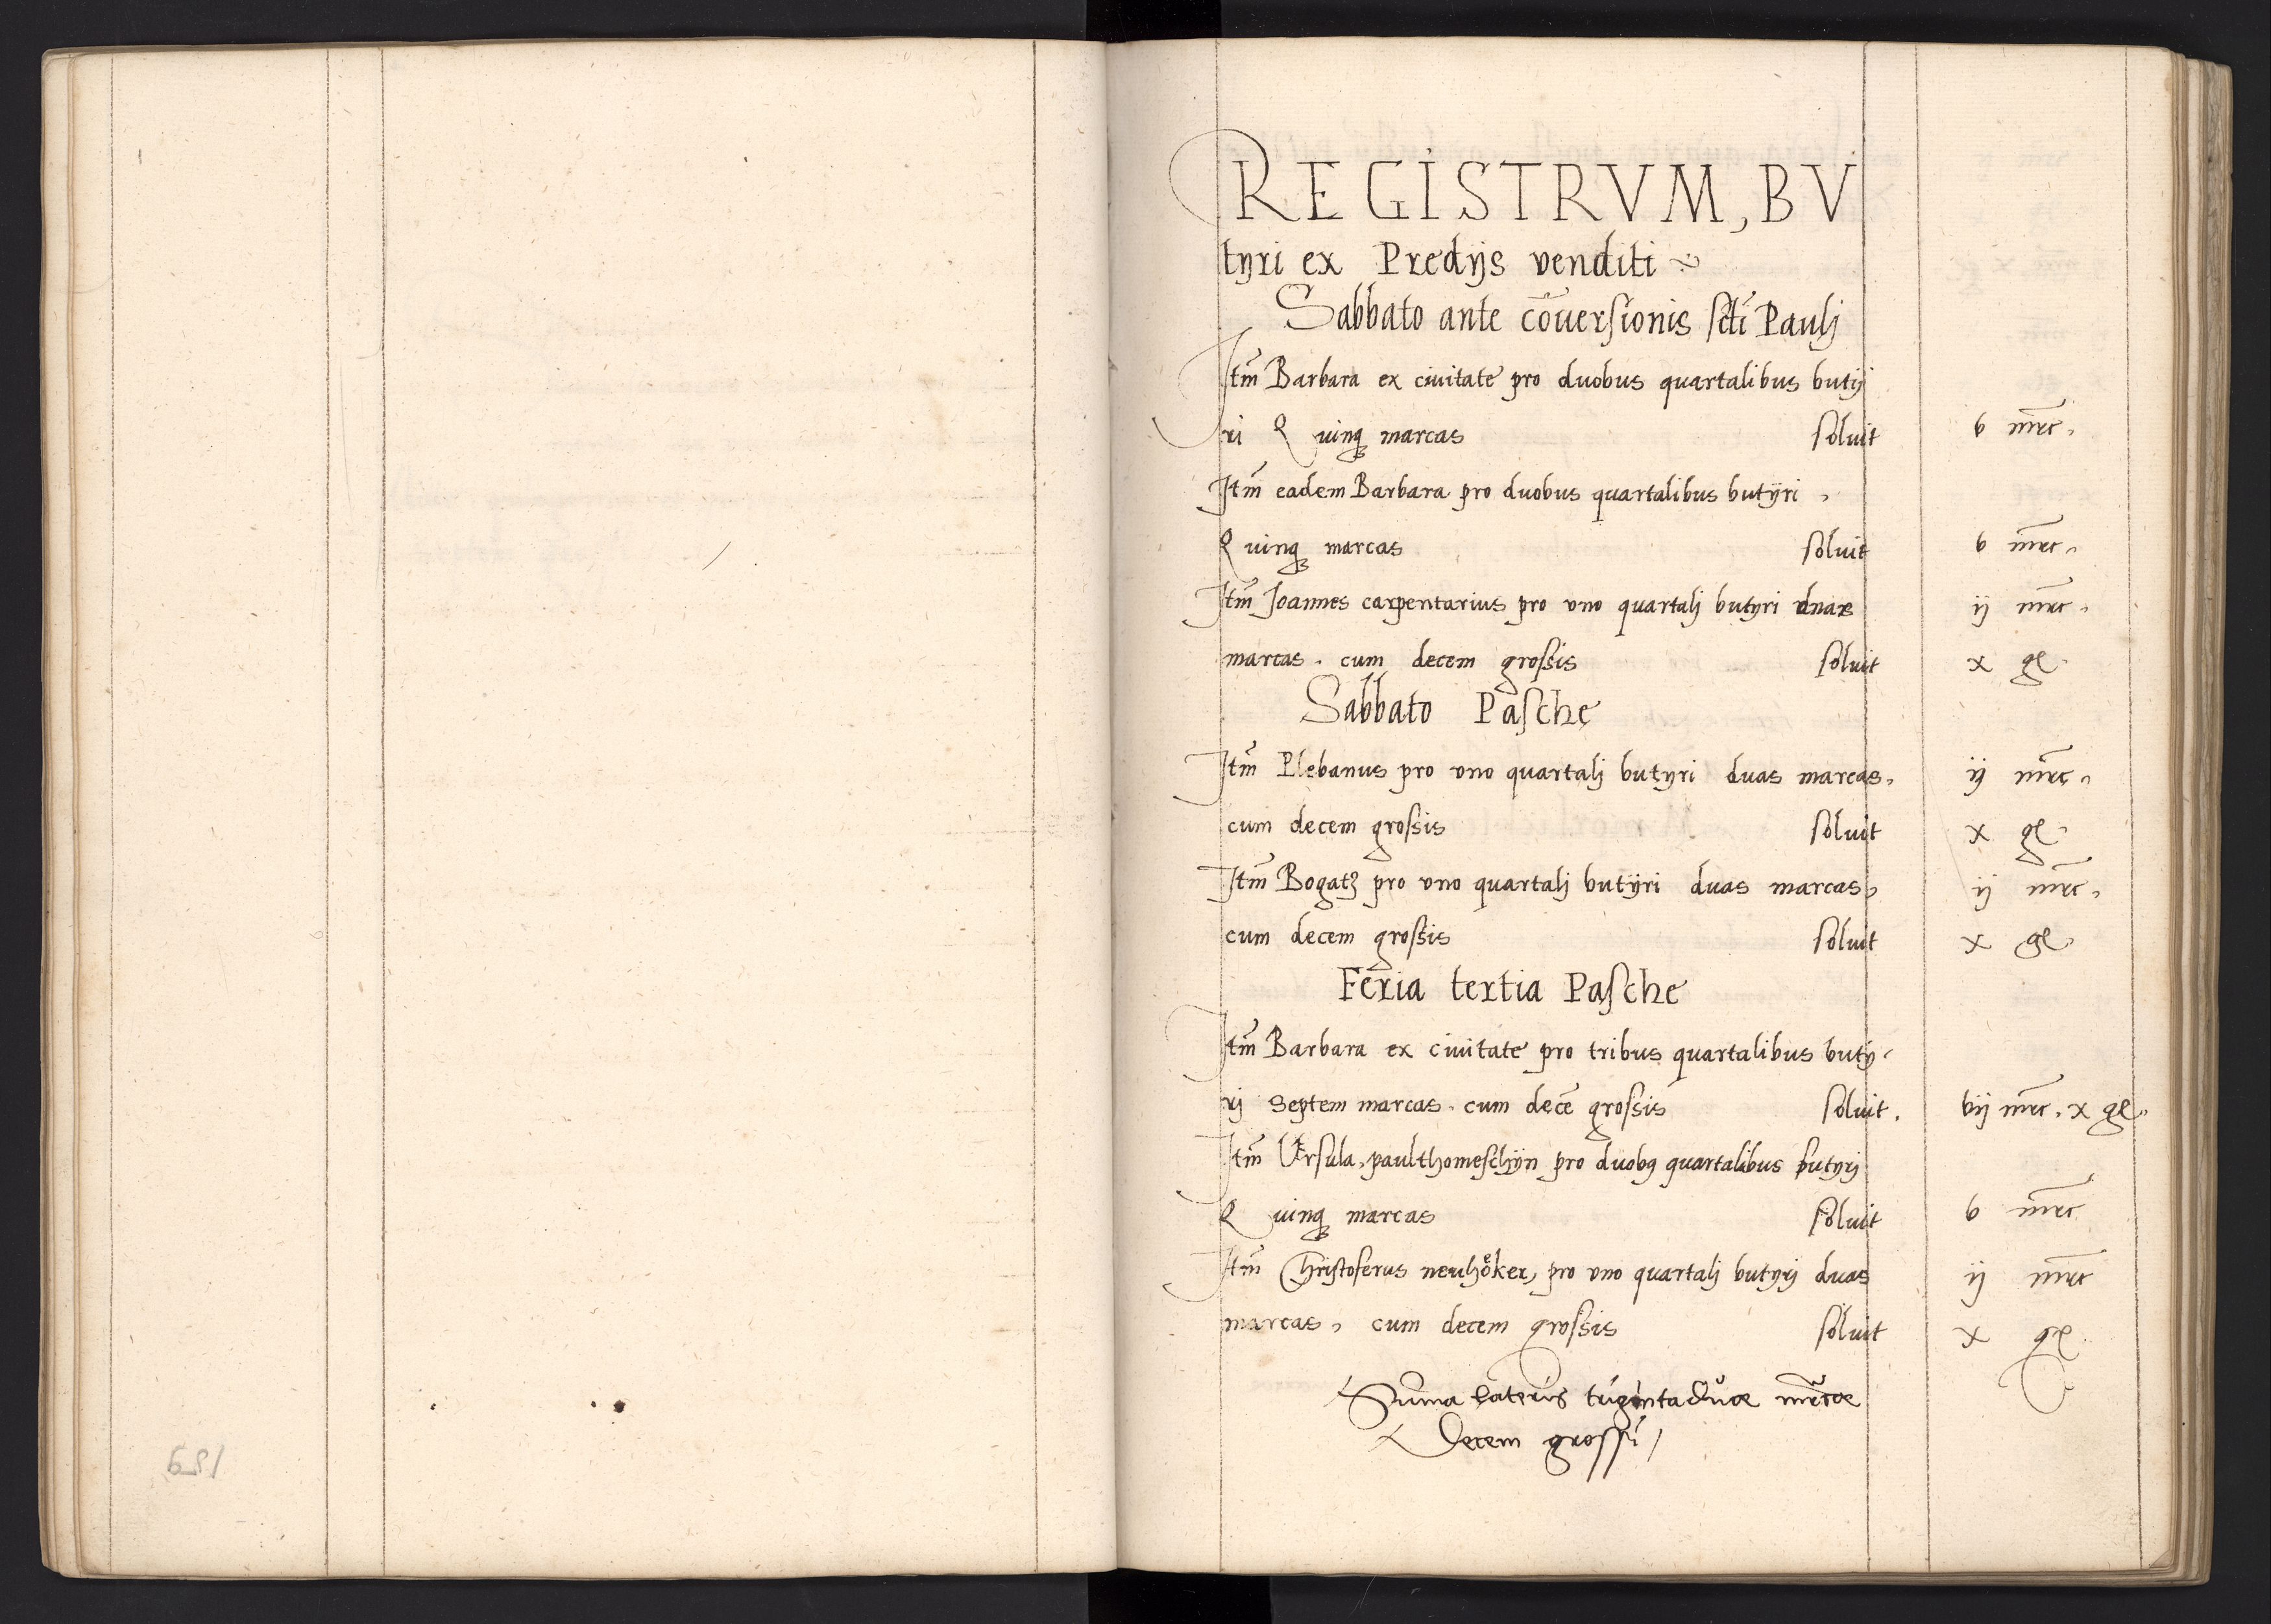 REGISTRVM, BV
tyri ex Predijs venditi
Sabbato ante cōuersionis scti Paulj
Itm̄ Barbara ex ciuitate pro duobus quartalibus butÿ
ri Quinq marcas soluit v mrc.
Itm̄ eadem Barbara pro duobus quartalibus butÿri
Quinq marcas soluit v mrc.
Itm̄ Joannes carpentarius pro vno quartalj butyri duas ij mrc.
marcas. cum decem grossis soluit x gl
Sabbato Pasche
Itm̄ Plebanus pro vno quartalj butyri duas marcas. ij mrc.
cum decem grossis soluit x gl
Itm̄ Bogatz pro vno quartalj butÿri duas marcas, ij mrc.
cum decem grossis soluit x gl
Feria tertia Pasche
Itm̄ Barbara ex ciuitate pro tribus quartalibus butÿ
rj Septem marcas. cum decē grossis soluit. vij mrc. x gl
Itm̄ Vrsula paulthomeschÿn pro duobq quartalibus butyrj
Quinq marcas soluit v mrc
Itm̄ Christoferus neuhöker, pro vno quartalj butyrj duas ij mrc
marcas, cum decem grossis soluit x gl
Sum̄a lateris trigintaduae mrcae
Decem grossi
159